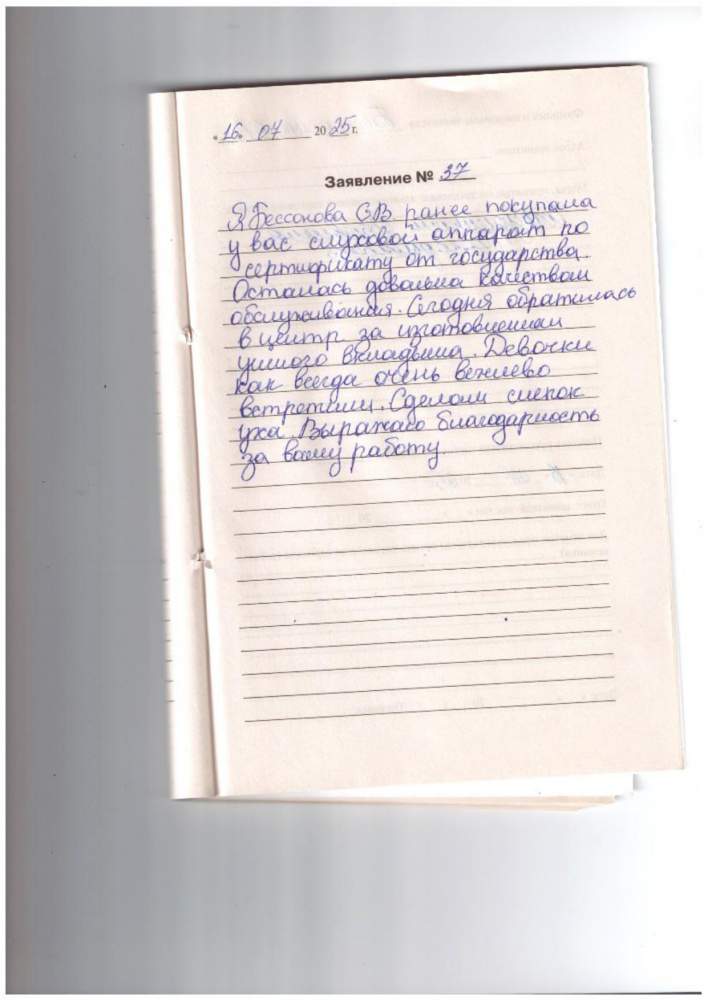 «16» 07 2025 г.
Заявление № 37
Я Бессонова С.В ранее покупала
у вас слуховой аппарат по
сертификату от государства.
Осталась довольна качеством
обслуживания. Сегодня обратилась
в центр за изготовлением
ушного вкладыша. Девочки
как всегда очень вежлево
встретили. Сделали слепок
уха. Выражаю благодарность
за вашу работу